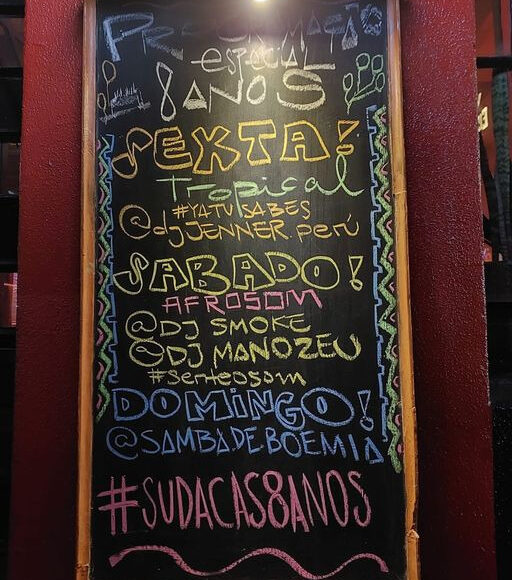 PROGRAMAÇÃO
espacal
8ANOS
SEXTA!
Tropical
#YATUSABES
@djJENNER.perú
SABADO!
AFROSOM
@DJ SMOKE
@DJ MANOZEU
#senteosom
DOMINGO!
@SAMBADEBOEMIA
#SUDACAS8ANOS